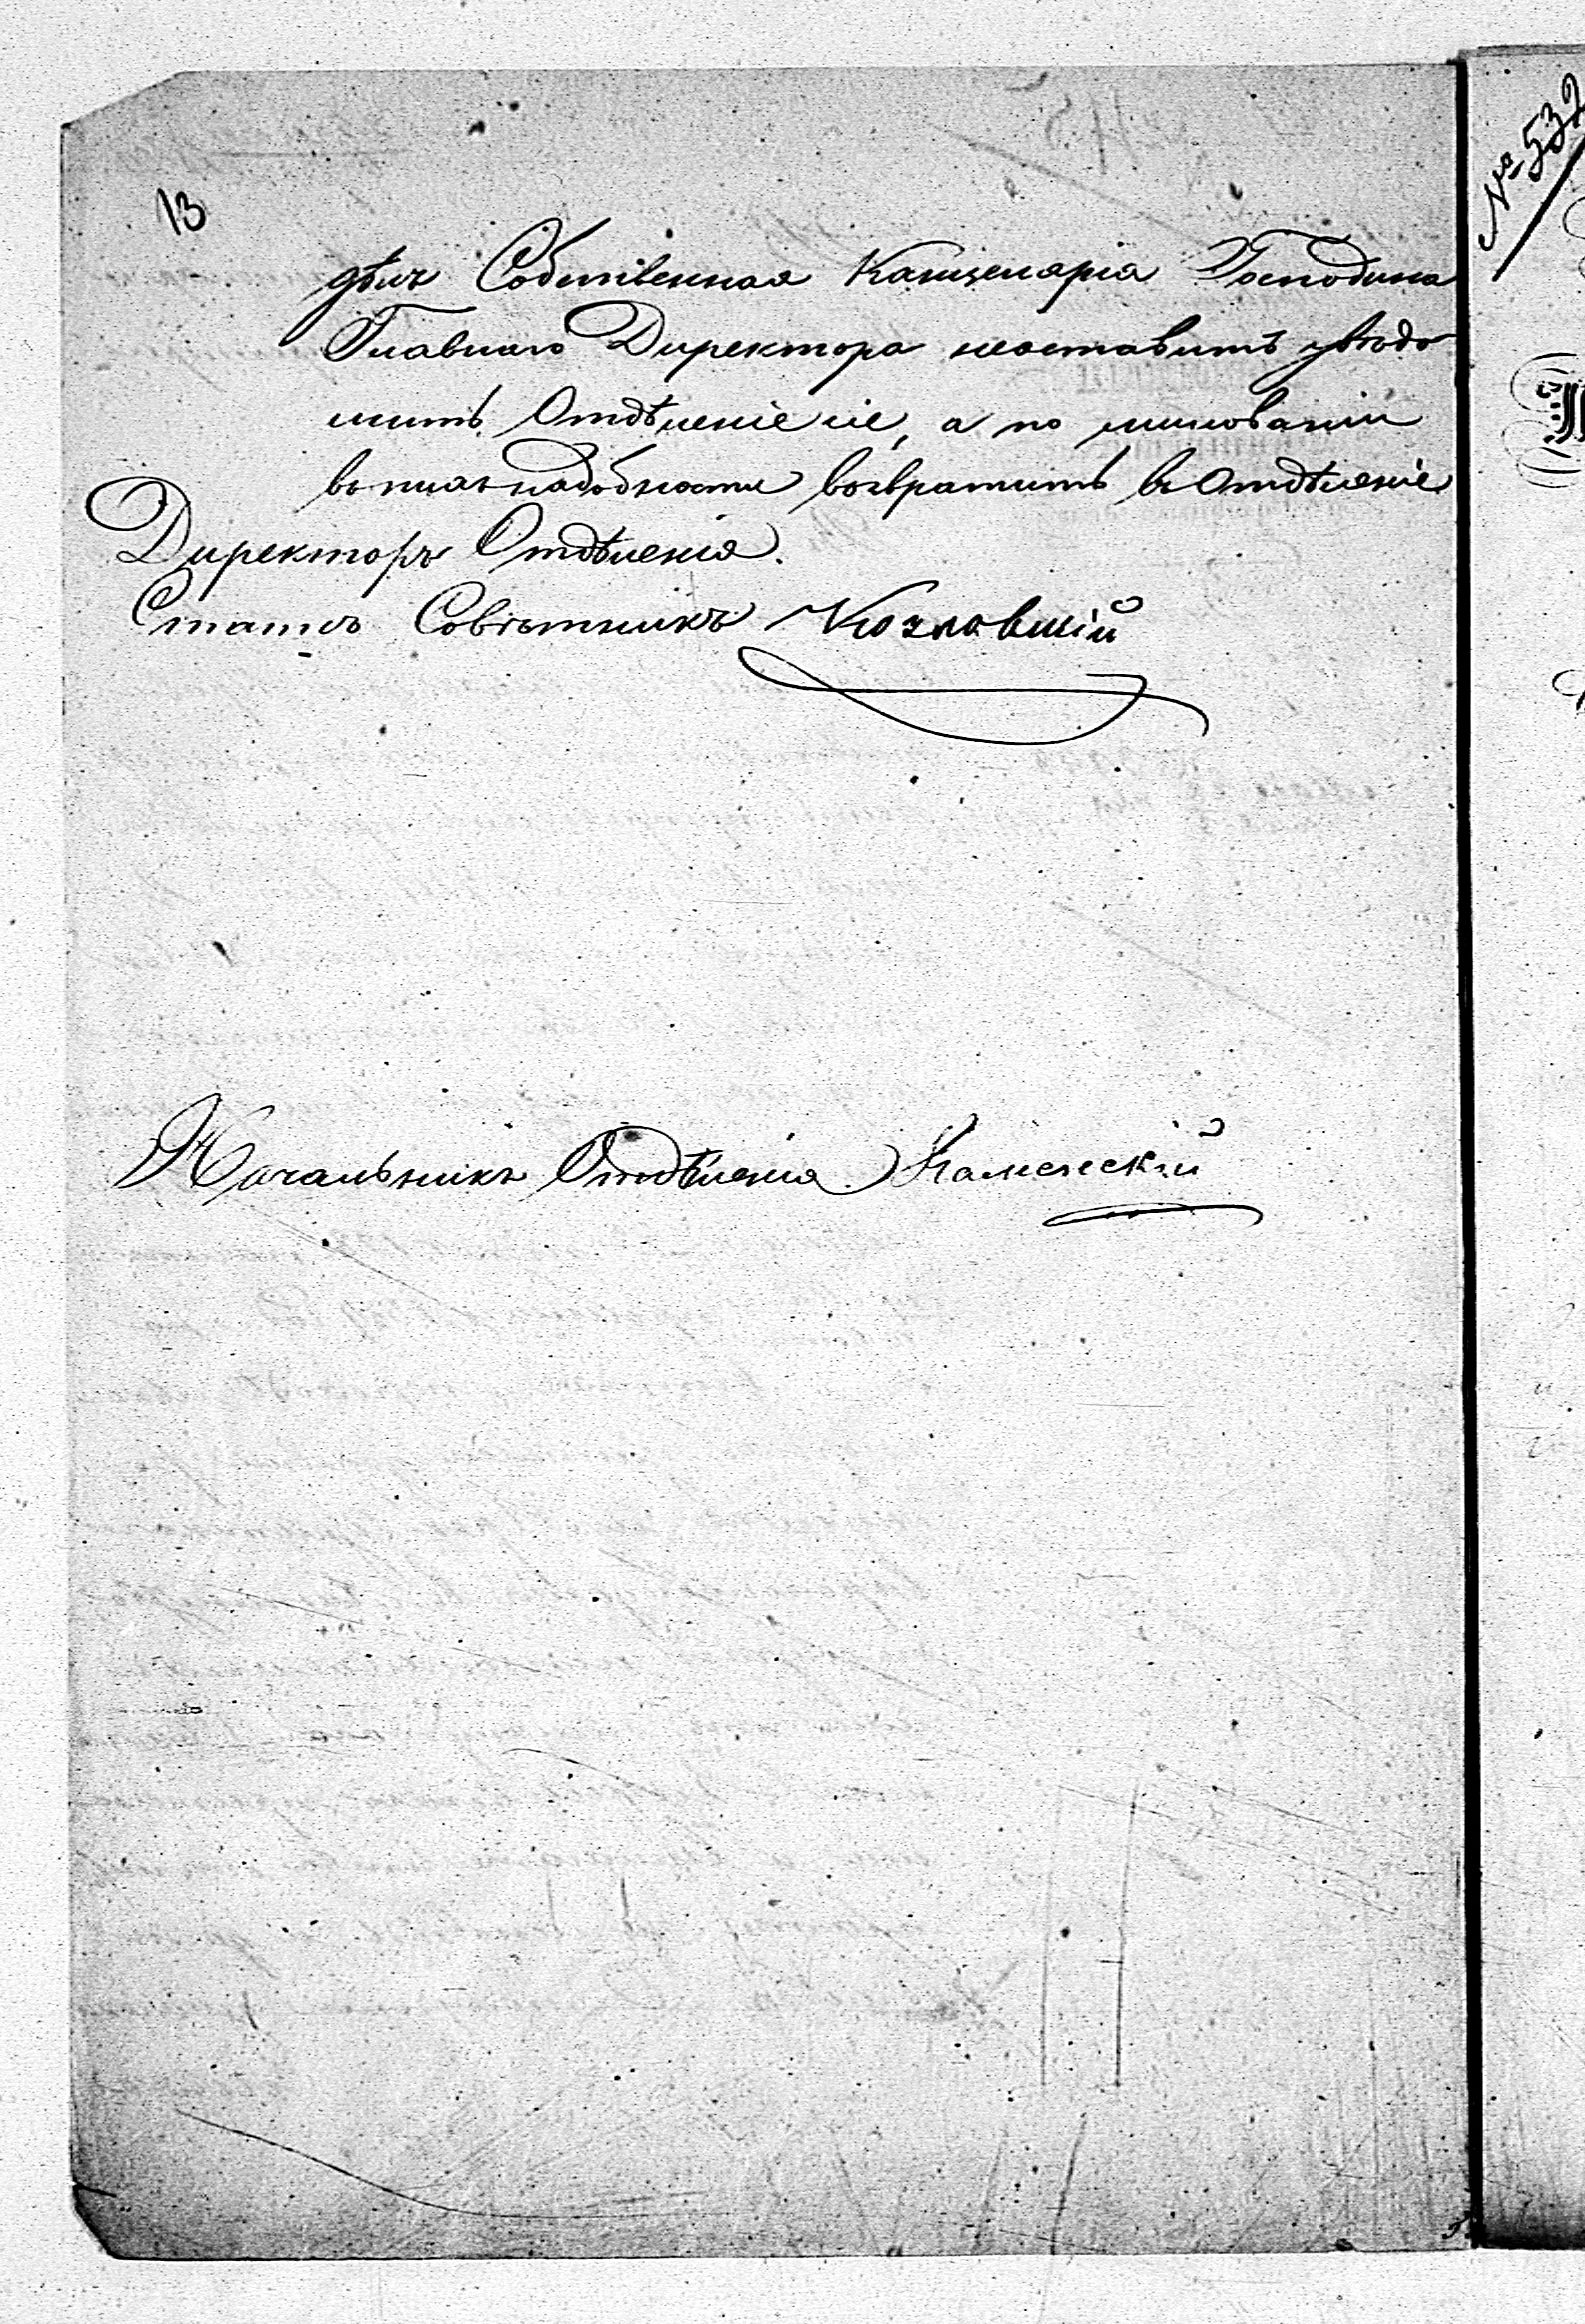 13
дѣлъ Собственная Канцелярія Господина
Главнаго Директора неоставитъ увѣдо
мить Отдѣленіе сіе, а по минованіи
въ нихъ надобности возвратить въ Отдѣленіе
Директоръ Отдѣленія.
Статс Совѣтникъ Козловскій
Начальникъ Отдѣленія Каменскій
№ 532